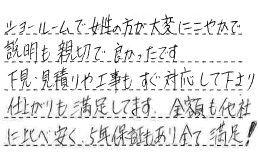 ショールームで女性の方が大変にこやかで
説明も親切で良かったです
下見・見積りや工事もすぐ対応して下さり
仕上がりも満足してます。金額も他社
に比べ安く、5年保証もあり全て満足!